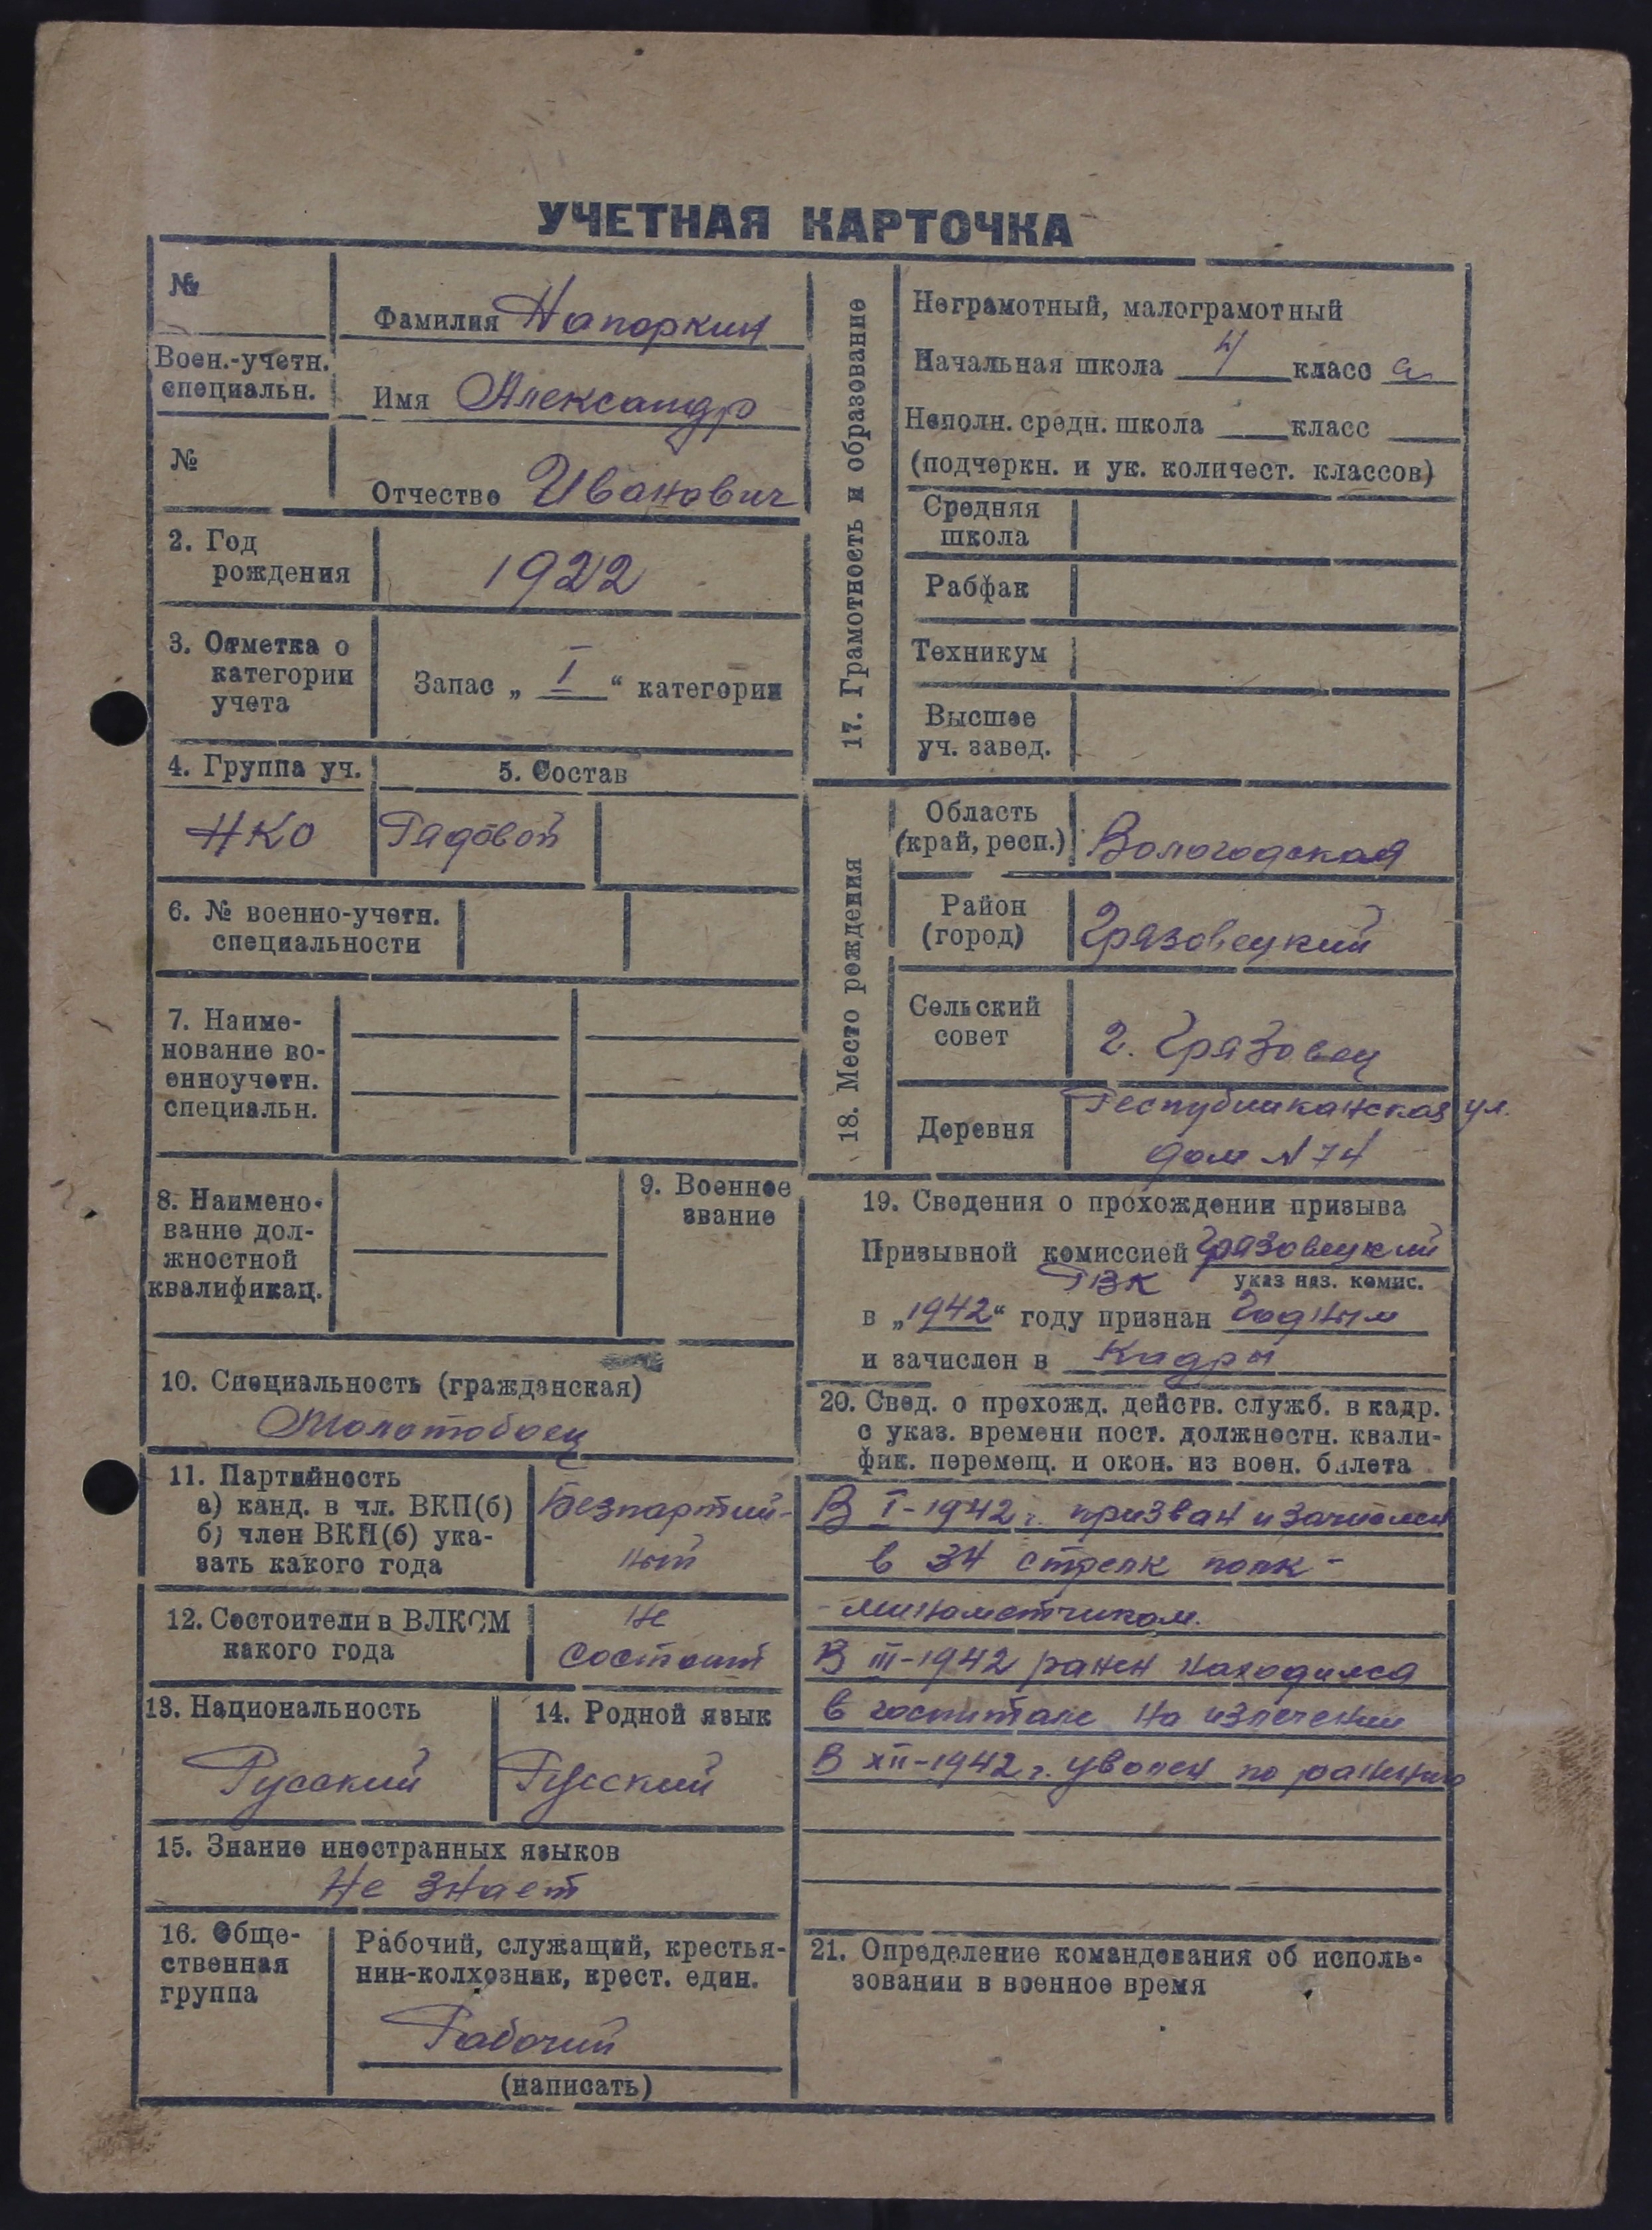 УЧЕТНАЯ КАРТОЧКА
№
Фамилия Напоркин
Воен.-учетн.
специальн.
Имя Александр
№
Отчество Иванович
2. Год
рождения
1922
3. Отметка о
категории
учета
Запас „ I “ категории
4. Группа уч.
5. Состав
НКО
Рядовой
6. № военно-учетн.
специальности
7. Наиме-
нование во-
енноучетн.
специальн.
8. Наимено-
вание дол-
жностной
квалификац.
9. Военное
звание
10. Специальность (гражданская)
Молотобоец
11. Партийность
а) канд. в чл. ВКП(б)
б) член ВКП(б) ука-
зать какого года
Безпартий-
ный
12. Состоители в ВЛКСМ
какого года
Не
состоит
13. Национальность
Русский
14. Родной язык
Русский
15. Знание иностранных языков
Не знает
16. Обще-
ственная
группа
Рабочий, служащий, крестья-
нин-колхозник, крест. един.
Рабочий
(написать)
17. Грамотность и образование
Неграмотный, малограмотный
Начальная школа 4 класс а
Неполн. средн. школа класс
(подчеркн. и ук. количест. классов)
Средняя
школа
Рабфак
Техникум
Высшее
уч. завед.
18. Место рождения
Область
(край, респ.)
Вологодская
Район
(город)
Грязовецкий
Сельский
совет
г. Грязовец
Деревня
Республиканская ул.
дом № 74
19. Сведения о прохождении призыва
Призывной комиссией Грязовецкий
РВК
указ наз. комис.
в „1942“ году признан Годным
и зачислен в Кадры
20. Свед. о прохожд. действ. служб. в кадр.
с указ. времени пост. должностн. квали-
фик. перемещ. и окон. из воен. билета
В I-1942 г. призван и зачислен
в 34 стрелк полк -
- минометчиком.
В III-1942 ранен находился
в госпитале на излечении
В XII-1942 г. уволен по ранению
21. Определение командования об исполь-
зовании в военное время